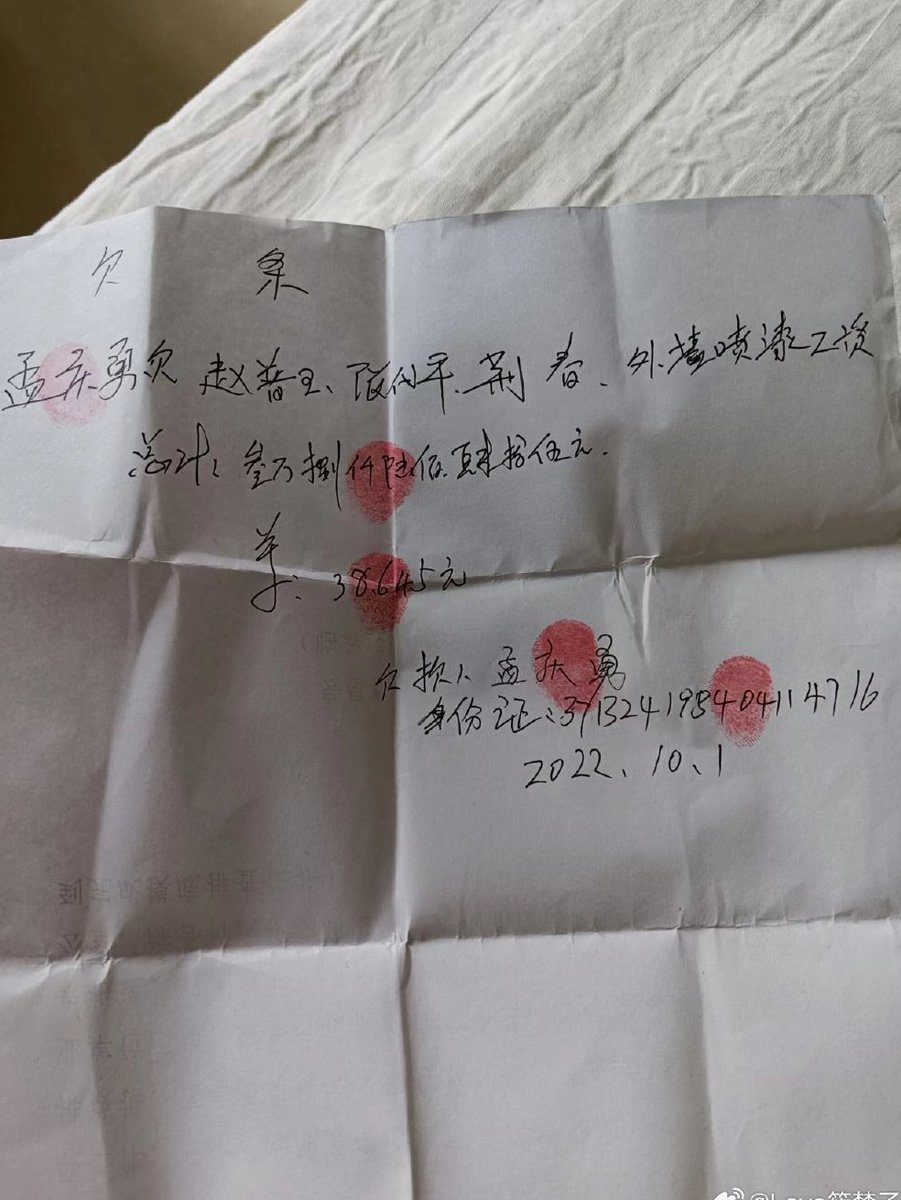 欠 条
孟庆勇欠 赵普玉、段付军、荆春、外墙喷漆工资
总计：叁万捌仟陆佰肆拾伍元.
￥: 38.645元
欠款人 孟庆勇
身份证：371324198404114716
2022、10、1